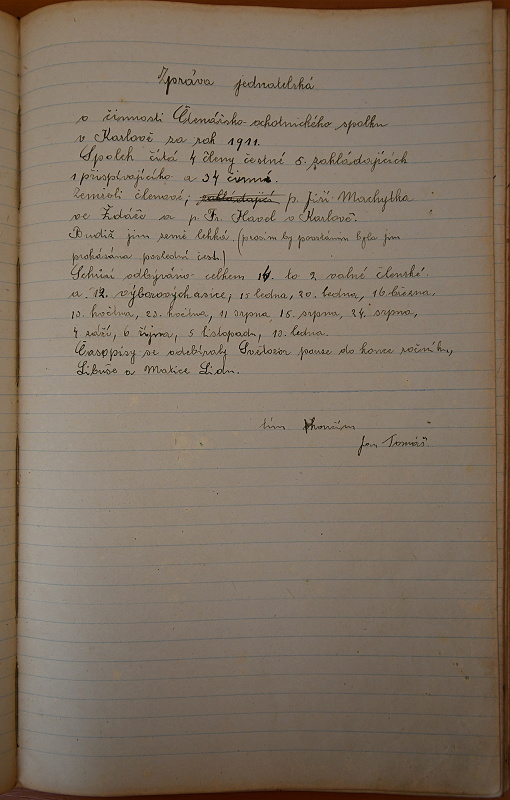 Zpráva jednatelská
o činnosti Čtenářsko-ochotnického spolku
v Karlově za rok 1911.
Spolek čítá 4 členy čestné 5 zakládajících
1 přispívajícího a 34 činné.
Zemřeli členové, zakládající p. Jiří Machytka
ve Žďáře a p. Fr. Havel v Karlově.
Budiž jim země lehká (prosím by povstáním byla jim
prokázána poslední čest.)
Schůzí odbýváno celkem 14. to 2 valné členské
a 12. výborových a sice, 15 ledna, 20. ledna, 16 března
10. května, 23. května, 11 srpna, 15. srpna, 24. srpna,
4 září, 6 října, 5 listopadu, 10. ledna.
Časopisy se odebíraly Světozor pouze do konce ročníku,
Libuše a Matice Lidu.
tím končím
Jan Tomáš